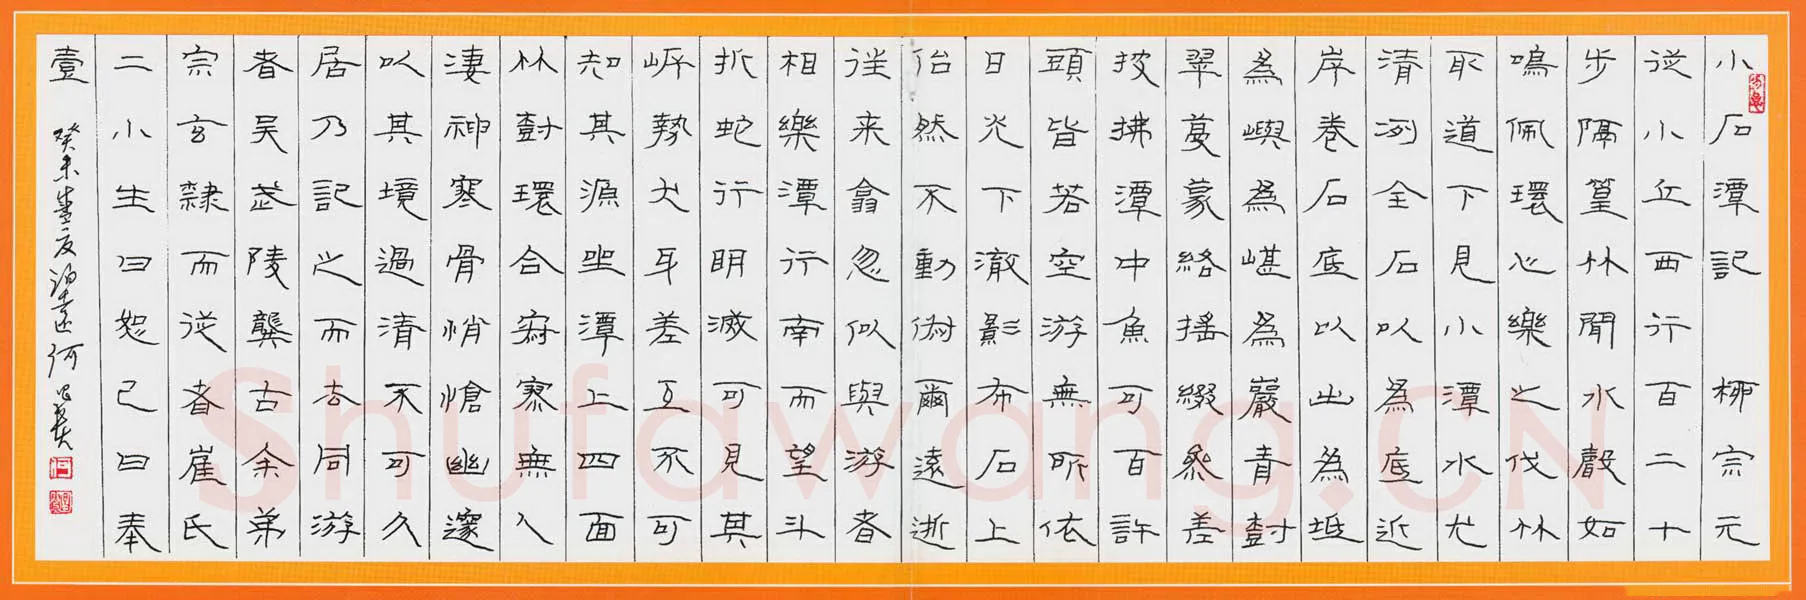 小石潭記 柳宗元
從小丘西行百二十
步隔篁林聞水聲如
鳴佩環心樂之伐林
取道下見小潭水尤
清冽全石以為底近
岸卷石底以出為坻
為嶼為嵁為巖青樹
翠蔓蒙絡搖綴參差
披拂潭中魚可百許
頭皆若空游無所依
日光下澈影布石上
佁然不動俶爾遠逝
往来翕忽似與游者
相樂潭行南而望斗
折蛇行明滅可見其
岍勢犬牙差互不可
知其源坐潭上四面
林樹環合寂寥無人
淒神寒骨悄愴幽邃
以其境過清不可久
居乃記之而去同游
者吴武陵龔古余弟
宗玄隸而從者崔氏
二小生曰恕己曰奉
壹
癸未 何
Shufawang.CN